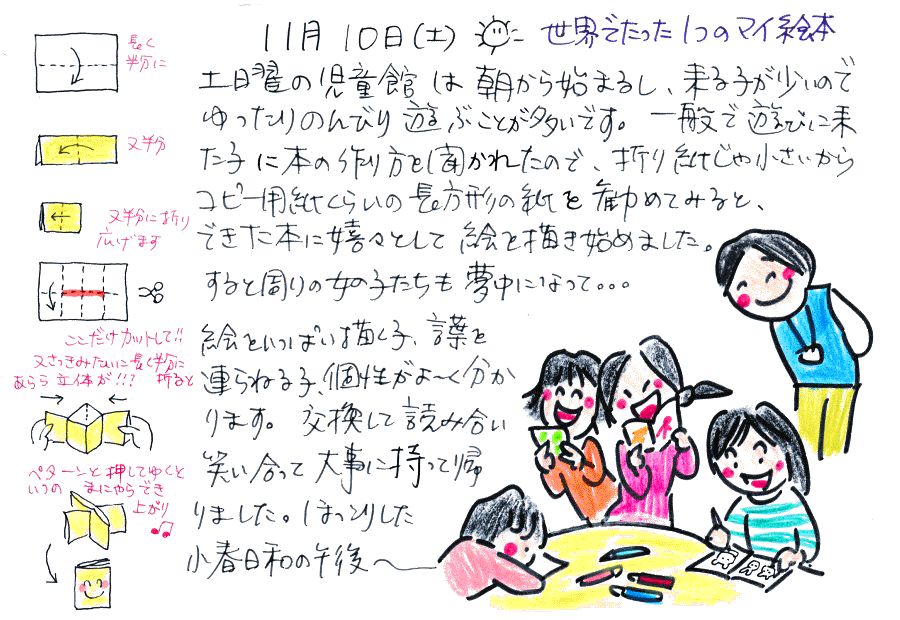 11月10日(土) 世界でたった1つのマイ絵本
土日曜の児童館は朝から始まるし、来る子が少いので
ゆったりのんびり遊ぶことが多いです。一般で遊びに来
た子に本の作り方を聞かれたので、折り紙じゃ小さいから
コピー用紙くらいの長方形の紙を勧めてみると、
できた本に嬉々として絵を描き始めました。
すると周りの女の子たちも夢中になって...
絵をいっぱい描く子、言葉を
連らねる子、個性がよ〜く分か
ります。交換して読み合い
笑い合って大事に持って帰
りました。ほっとりした
小春日和の午後〜
長く
半分に
又半分
又半分に折り
広げます
ここだけカットして!!
又さっきみたいに長く半分に
折ると
あらら立体が!!?
ペターンと押してゆくと
いつの まにやらでき
上がり